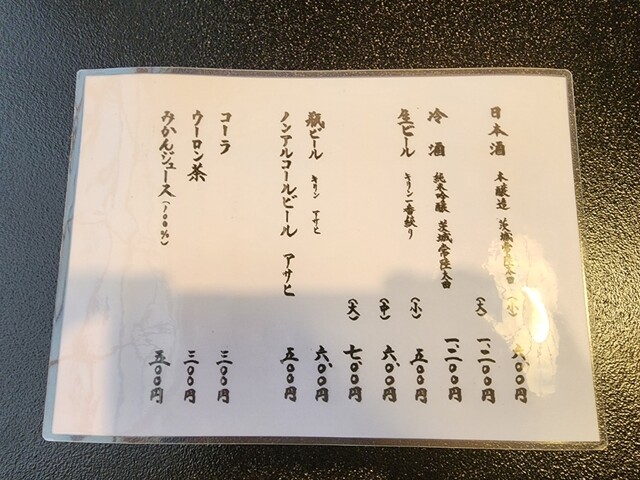 日本酒 本醸造 茨城常陸太田 (小) 六〇〇円
(大) 一、二〇〇円
冷酒 純米吟醸 茨城常陸太田 一、二〇〇円
生ビール キリン一番絞り (小) 五〇〇円
(中) 六〇〇円
(大) 七〇〇円
瓶ビール キリン アサヒ 六〇〇円
ノンアルコールビール アサヒ 五〇〇円
コーラ 三〇〇円
ウーロン茶 三〇〇円
みかんジュース(100%) 五〇〇円